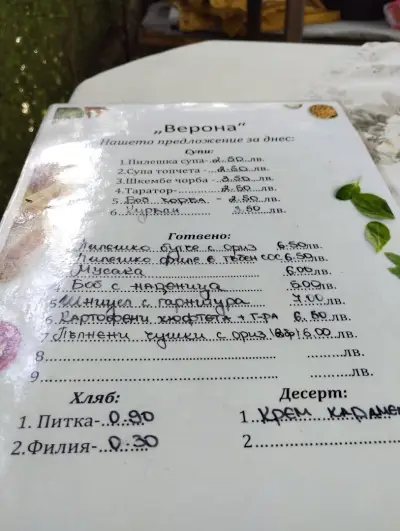 „Верона“
Нашето предложение за днес:
Супи:
1.Пилешка супа-2.50лв.
2.Супа топчета -2.50лв.
3.Шкембе чорба -3.50лв.
4.Таратор-2.50лв.
5.Боб чорба - 2.50лв.
6. 3.50лв.
Готвено:
Пилешко бутче с ориз 6.50лв.
Пилешко филе в гъбен сос 6.50лв.
Мусака 6.00лв.
Боб с наденица 5.00лв.
5 Шницел с гарнитура 7.00лв.
6. Картофени кюфтета + г-ра 6.50лв.
7. Пълнени чушки с ориз 6.00лв.
8. лв.
9. лв.
Хляб: Десерт:
1. Питка-0.90 1. Крем карамел
2.Филия-0.30 2